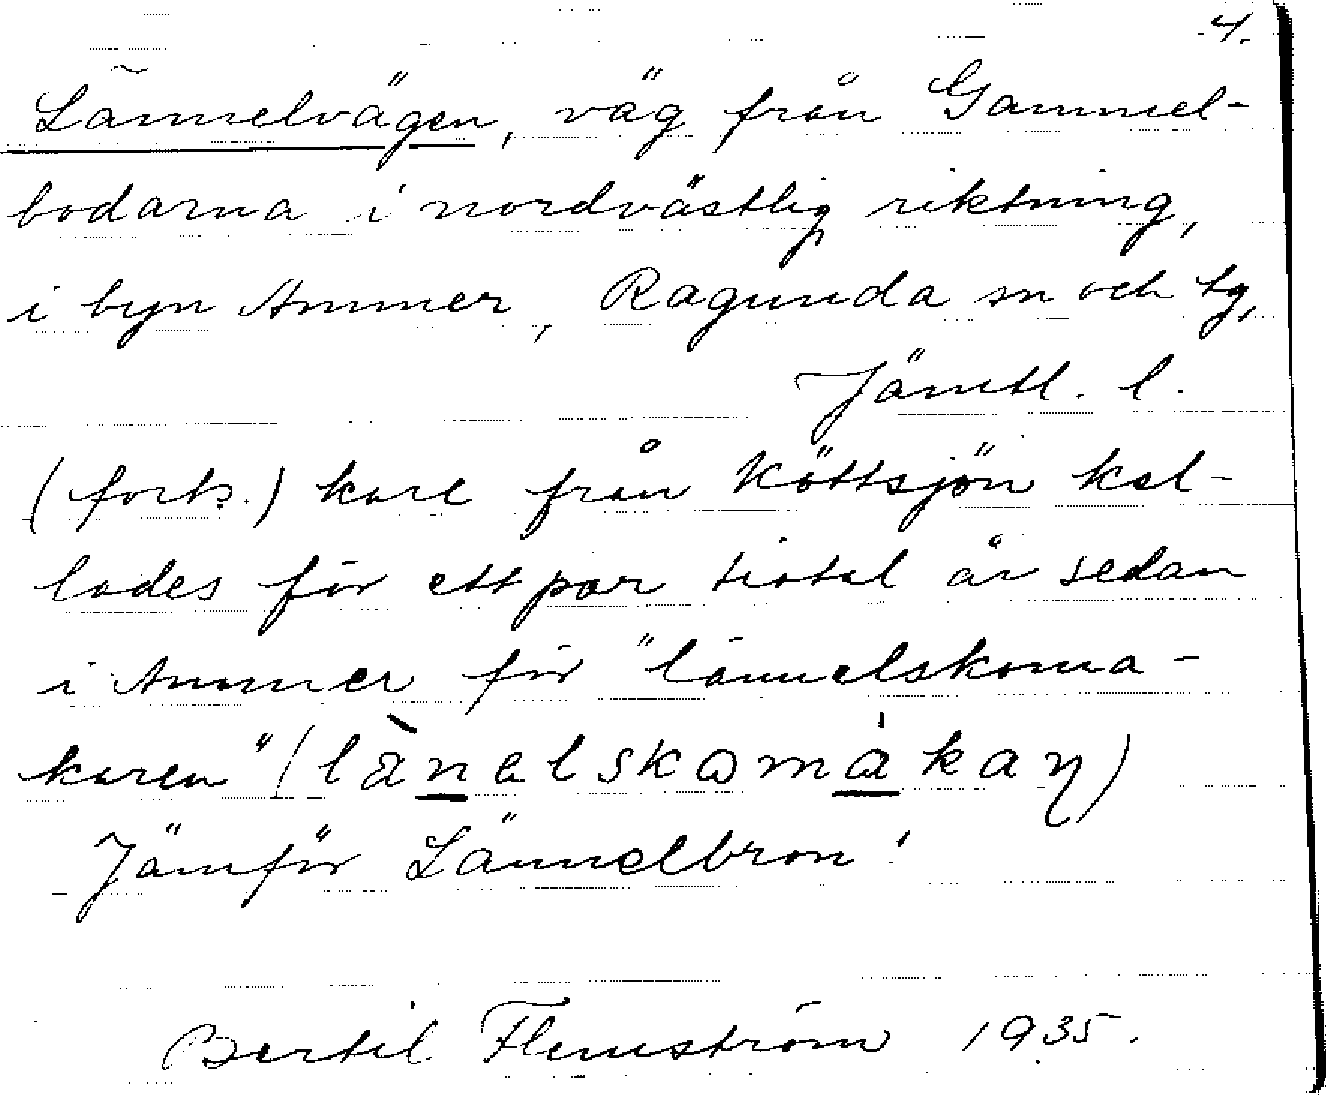 4.
Lännelvägen, väg från Gammel-
bodarna i nordvästlig riktning,
i byn Ammer, Ragunda sn och tg,
Jämtl. l.
(forts.) karl från Köttsjön kal-
lades för ett par tiotal år sedan
i Ammer för "lännelskoma-
karen" (lànelskomákaŋ)
Jämför Lännelbron!
Bertil Flemström 1935.